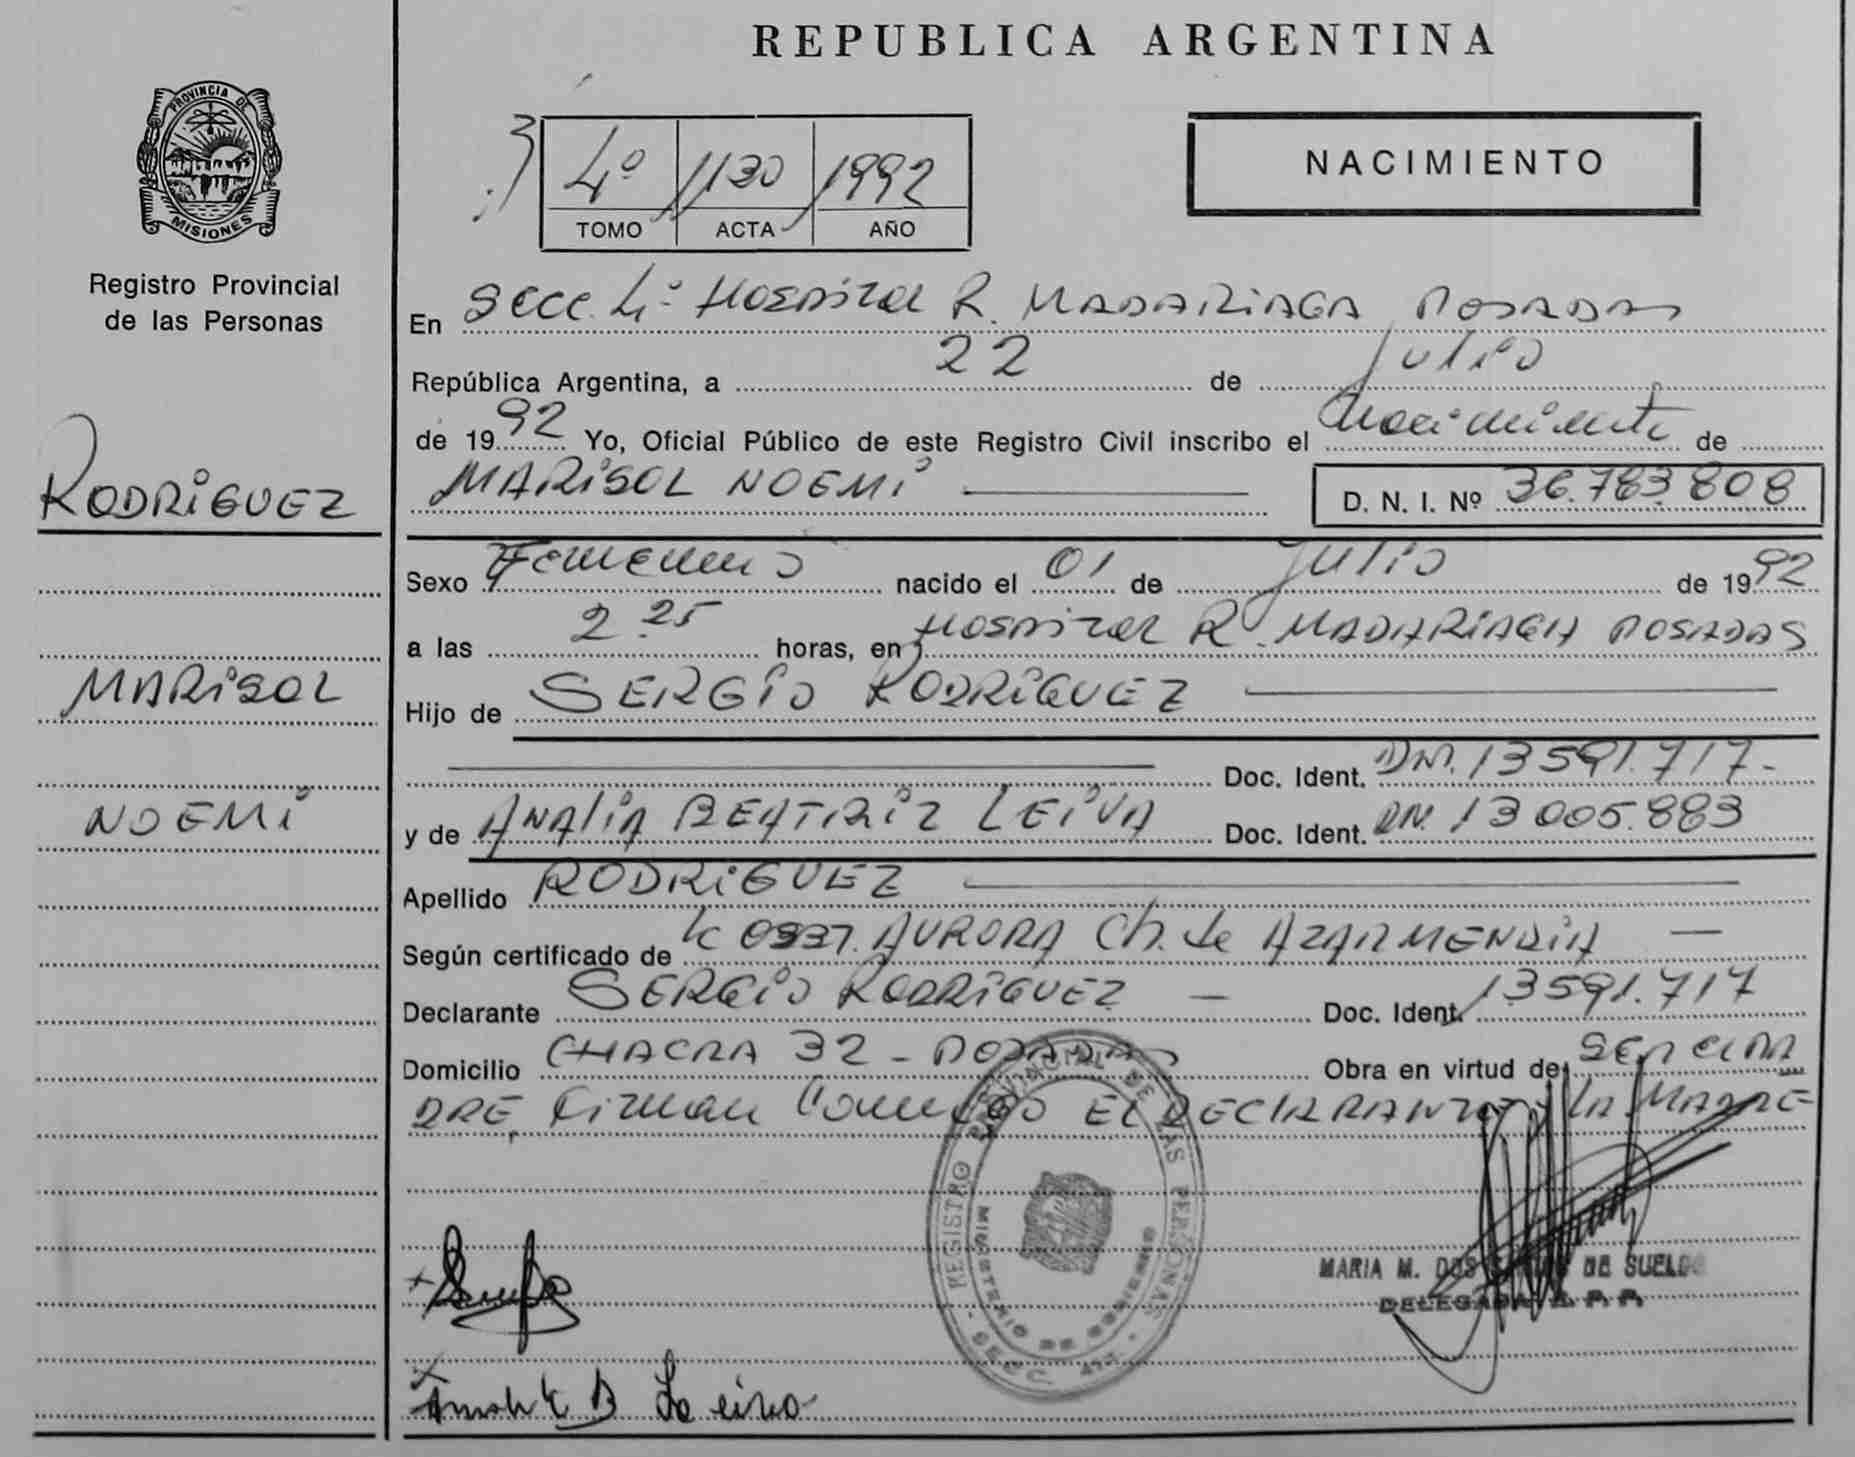 REPUBLICA ARGENTINA
PROVINCIA DE
MISIONES
Registro Provincial
de las Personas
4º 1130 1992
TOMO ACTA AÑO
NACIMIENTO
En Secc. 4º Hospital R. MADARIAGA POSADAS
República Argentina, a 22 de Julio
de 1992 Yo, Oficial Público de este Registro Civil inscribo el nacimiento de
MARISOL NOEMI D. N. I. Nº 36.783.808
RODRIGUEZ
MARISOL
NOEMI
Sexo Femenino nacido el 01 de Julio de 1992
a las 2 25 horas, en Hospital R. MADARIAGA POSADAS
Hijo de SERGIO RODRIGUEZ
Doc. Ident. DNI. 13591.717-
y de ANALIA BEATRIZ LEIVA Doc. Ident. DNI. 13005.883
Apellido RODRIGUEZ
Según certificado de AURORA Ch. de AZARMENDIA
Declarante SERGIO RODRIGUEZ - Doc. Ident. 13591.717
Domicilio CHACRA 32 - POSADAS Obra en virtud de SER EL PA
DRE, Firman Conmigo EL DECLARANTE y LA MADRE
REGISTRO PROVINCIAL DE LAS PERSONAS
MINISTERIO DE GOBIERNO
SECC. 4ta.
MARIA M. DOS DE SUELDO
DELEGADA R. P. P.
B Leiva